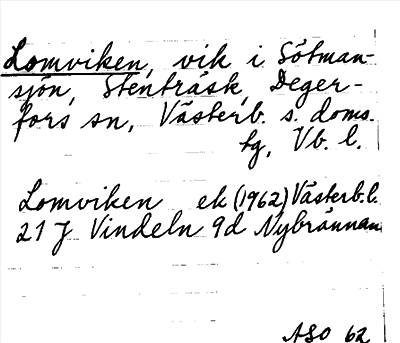 Lomviken, vik i Sötman-
sjön, Stenträsk, Deger-
fors sn, Västerb. s. doms.
tg, Vb. l.
Lomviken ek (1962) Västerb. l.
21 J Vindeln 9d Nybrännan
ASO 62